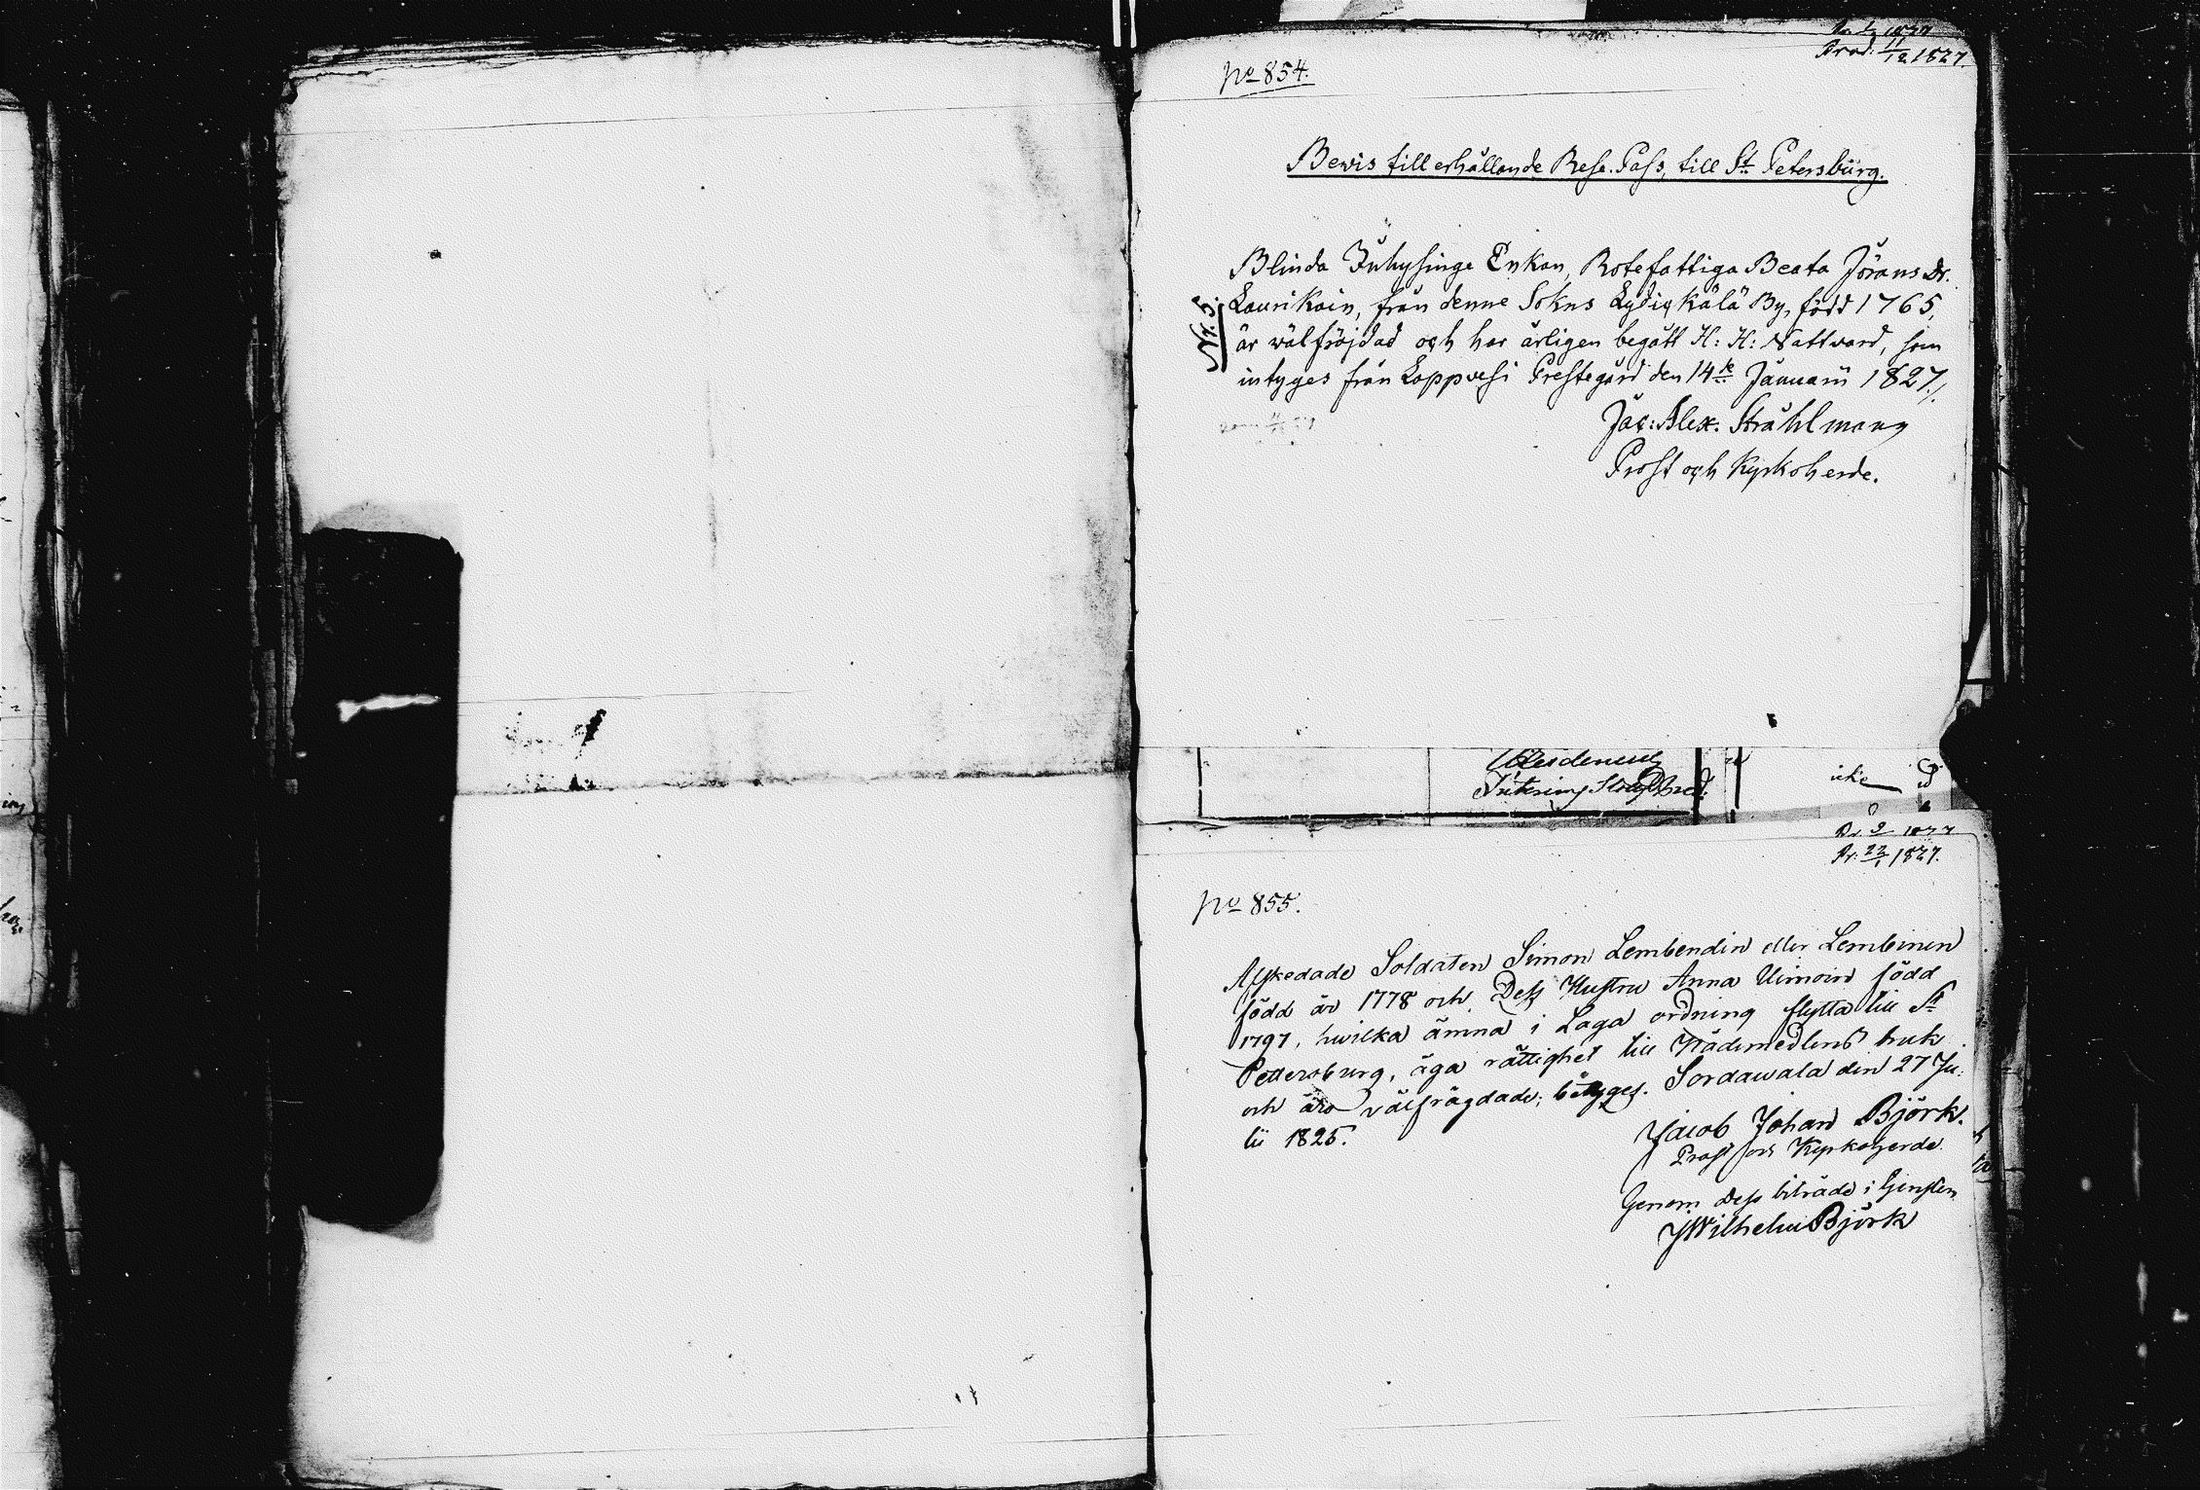 No 854.
Prod: 11/2 1827.
Bewis till erhållande Rese-Pass, till St Petersburg.
Blinda Inhysinge Enkan, Rotefattiga Beata Jörans Dr.
Laurikain, från denne Sokns By, född 1765,
Nr. 5.
är wälfröjdad och har årligen begått H: H: Nattward, som
intyges från Lappvesi Prestegård den 14de Januarii 1827./.
Jac: Alex. Stråhlmann
Prost och Kyrkoherde.
icke
Pr: 22/1 1827.
No 855.
Afskedade Soldaten Simon Lembendin eller Lembinen
född år 1778 och Dess Hustru Anna Uimoin född
1797, hwilka ämna i Laga ordning flytta till St
Pettersburg, äga rättighet till Nådemedlens bruk
och äro välfrägdade; betyges. Sordawala den 27 Ju-
lii 1825.
Jacob Johan Björk.
Prost och Kyrkoherde
Genom Dess biträde i Tjensten
J Wilhelm Björk